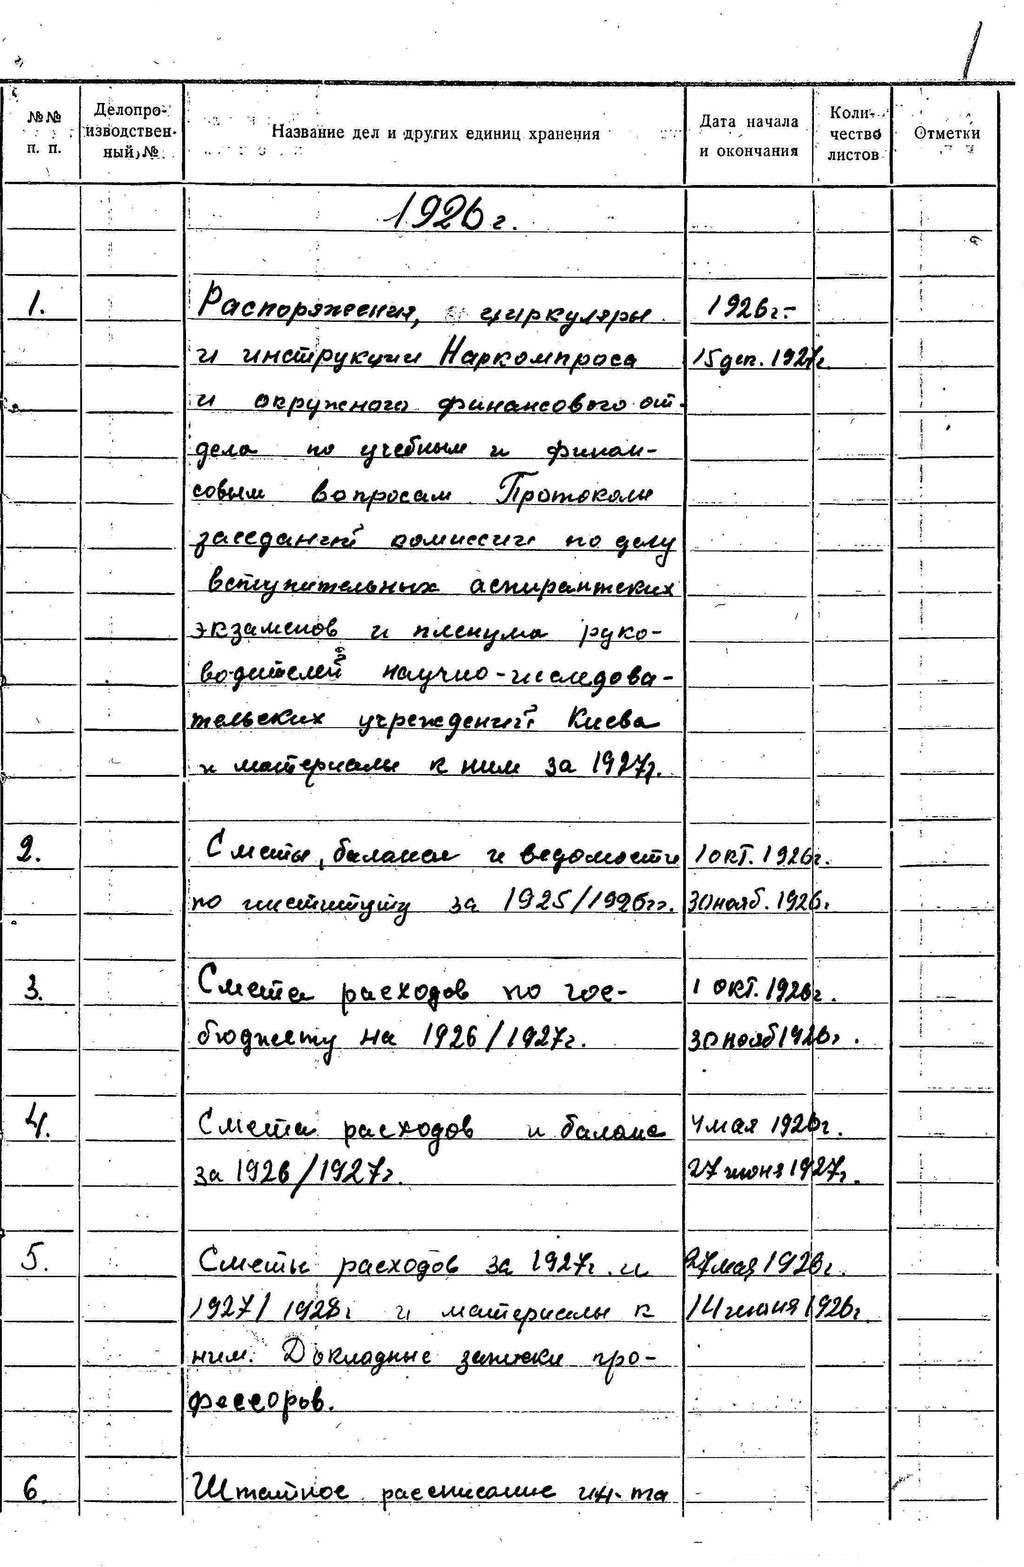 1
№№ п. п. Делопро- изводствен- ный № Название дел и других единиц хранения Дата начала и окончания Коли- чество листов Отметки
1926 г.
1. Распоряжения, циркуляры 1926г.-
и инструкции Наркомпроса 15 дек. 1927г.
и окружного финансового от-
дела по учебным и финан-
совым вопросам Протоколы
заседаний комиссии по делу
вступительных аспирантских
экзаменов и пленума руко-
водителей научно-исследова-
тельских учреждений Киева
и материалы к ним за 1927г.
2. Сметы, балансы и ведомости 1 окт. 1926г.
по институту за 1925/1926гг. 30 нояб. 1926г.
3. Смета расходов по гос- 1 окт. 1926г.
бюджету на 1926/1927г. 30 нояб 1926г.
4. Смета расходов и баланс 4 мая 1926г.
за 1926/1927г. 27 июня 1927г.
5. Сметы расходов за 1927г. и 27 мая 1926г.
1927/1928г и материалы к 14 июня 1926г.
ним. Докладные записки про-
фессоров.
6. Штатное расписание ин-та